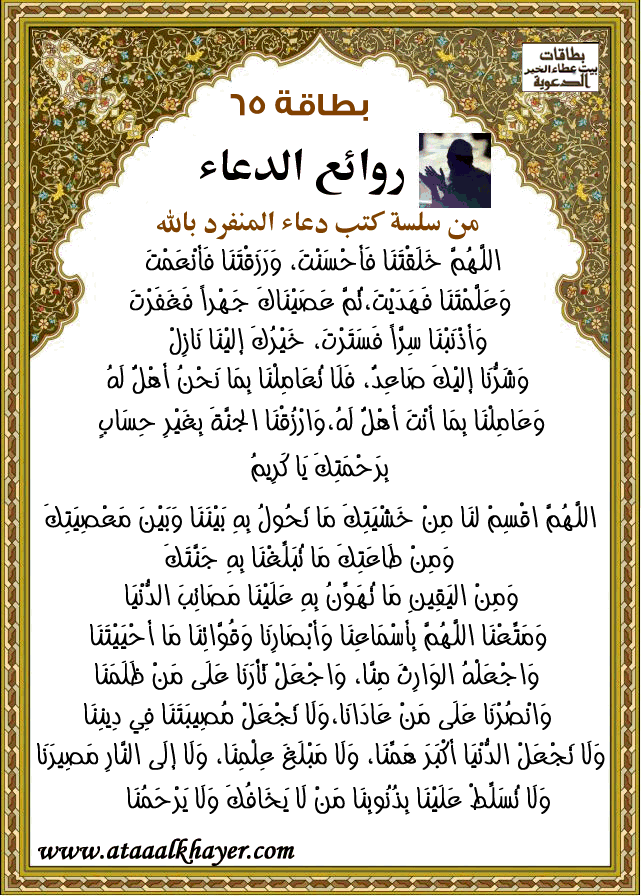 بطاقات
بيت عطاء الخير
الدعوية
بطاقة ٦٥
روائع الدعاء
من سلسة كتب دعاء المنفرد بالله
اللَّهُمَّ خَلَقْتَنَا فَأَحْسَنْتَ، وَرَزَقْتَنَا فَأَنْعَمْتَ
وَعَلَّمْتَنَا فَهَدَيْتَ،ثُمَّ عَصَيْنَاكَ جَهْراً فَغَفَرْتَ
وَأَذْنَبْنَا سِرَّاً فَسَتَرْتَ، خَيْرُكَ إِليْنَا نَازِلْ
وَشَرُّنَا إِليْكَ صَاعِدٌ، فَلَا تُعَامِلْنَا بِمَا نَحْنُ أَهْلٌ لَهُ
وَعَامِلْنَا بِمَا أَنْتَ أَهْلٌ لَهُ،وَارْزُقْنَا الجَنَّةَ بِغَيْرِ حِسَابٍ
بِرَحْمَتِكَ يَا كَرِيمُ
اللَّهُمَّ اقْسِمْ لَنَا مِنْ خَشْيَتِكَ مَا تَحُولُ بِهِ بَيْنَنَا وَبَيْنَ مَعْصِيَتِكَ
وَمِنْ طَاعَتِكَ مَا تُبَلِّغْنَا بِهِ جَنَّتَكَ
وَمِنْ اليَقِينِ مَا تُهَوِّنُ بِهِ عَلَيْنَا مَصَائِبَ الدُّنْيَا
وَمَتِّعْنَا اللَّهُمَّ بِأَسْمَاعِنَا وَأَبْصَارِنَا وَقُوَّاتِنَا مَا أَحْيَيْتَنَا
وَاجْعَلْهُ الوَارِثَ مِنَّا، وَاجْعَلْ ثَأْرَنَا عَلَى مَنْ ظَلَمَنَا
وَانْصُرْنَا عَلَى مَنْ عَادَانَا،وَلَا تَجْعَلْ مُصِيبَتَنَا فِي دِينِنَا
وَلَا تَجْعَلْ الدُّنْيَا أَكْبَرَ هَمِّنَا، وَلَا مَبْلَغَ عِلْمِنَا، وَلَا إِلَى النَّارِ مَصِيرَنَا
وَلَا تُسَلِّطْ عَلَيْنَا بِذُنُوبِنَا مَنْ لَا يَخَافُكَ وَلَا يَرْحَمُنَا
www.ataaalkhayer.com